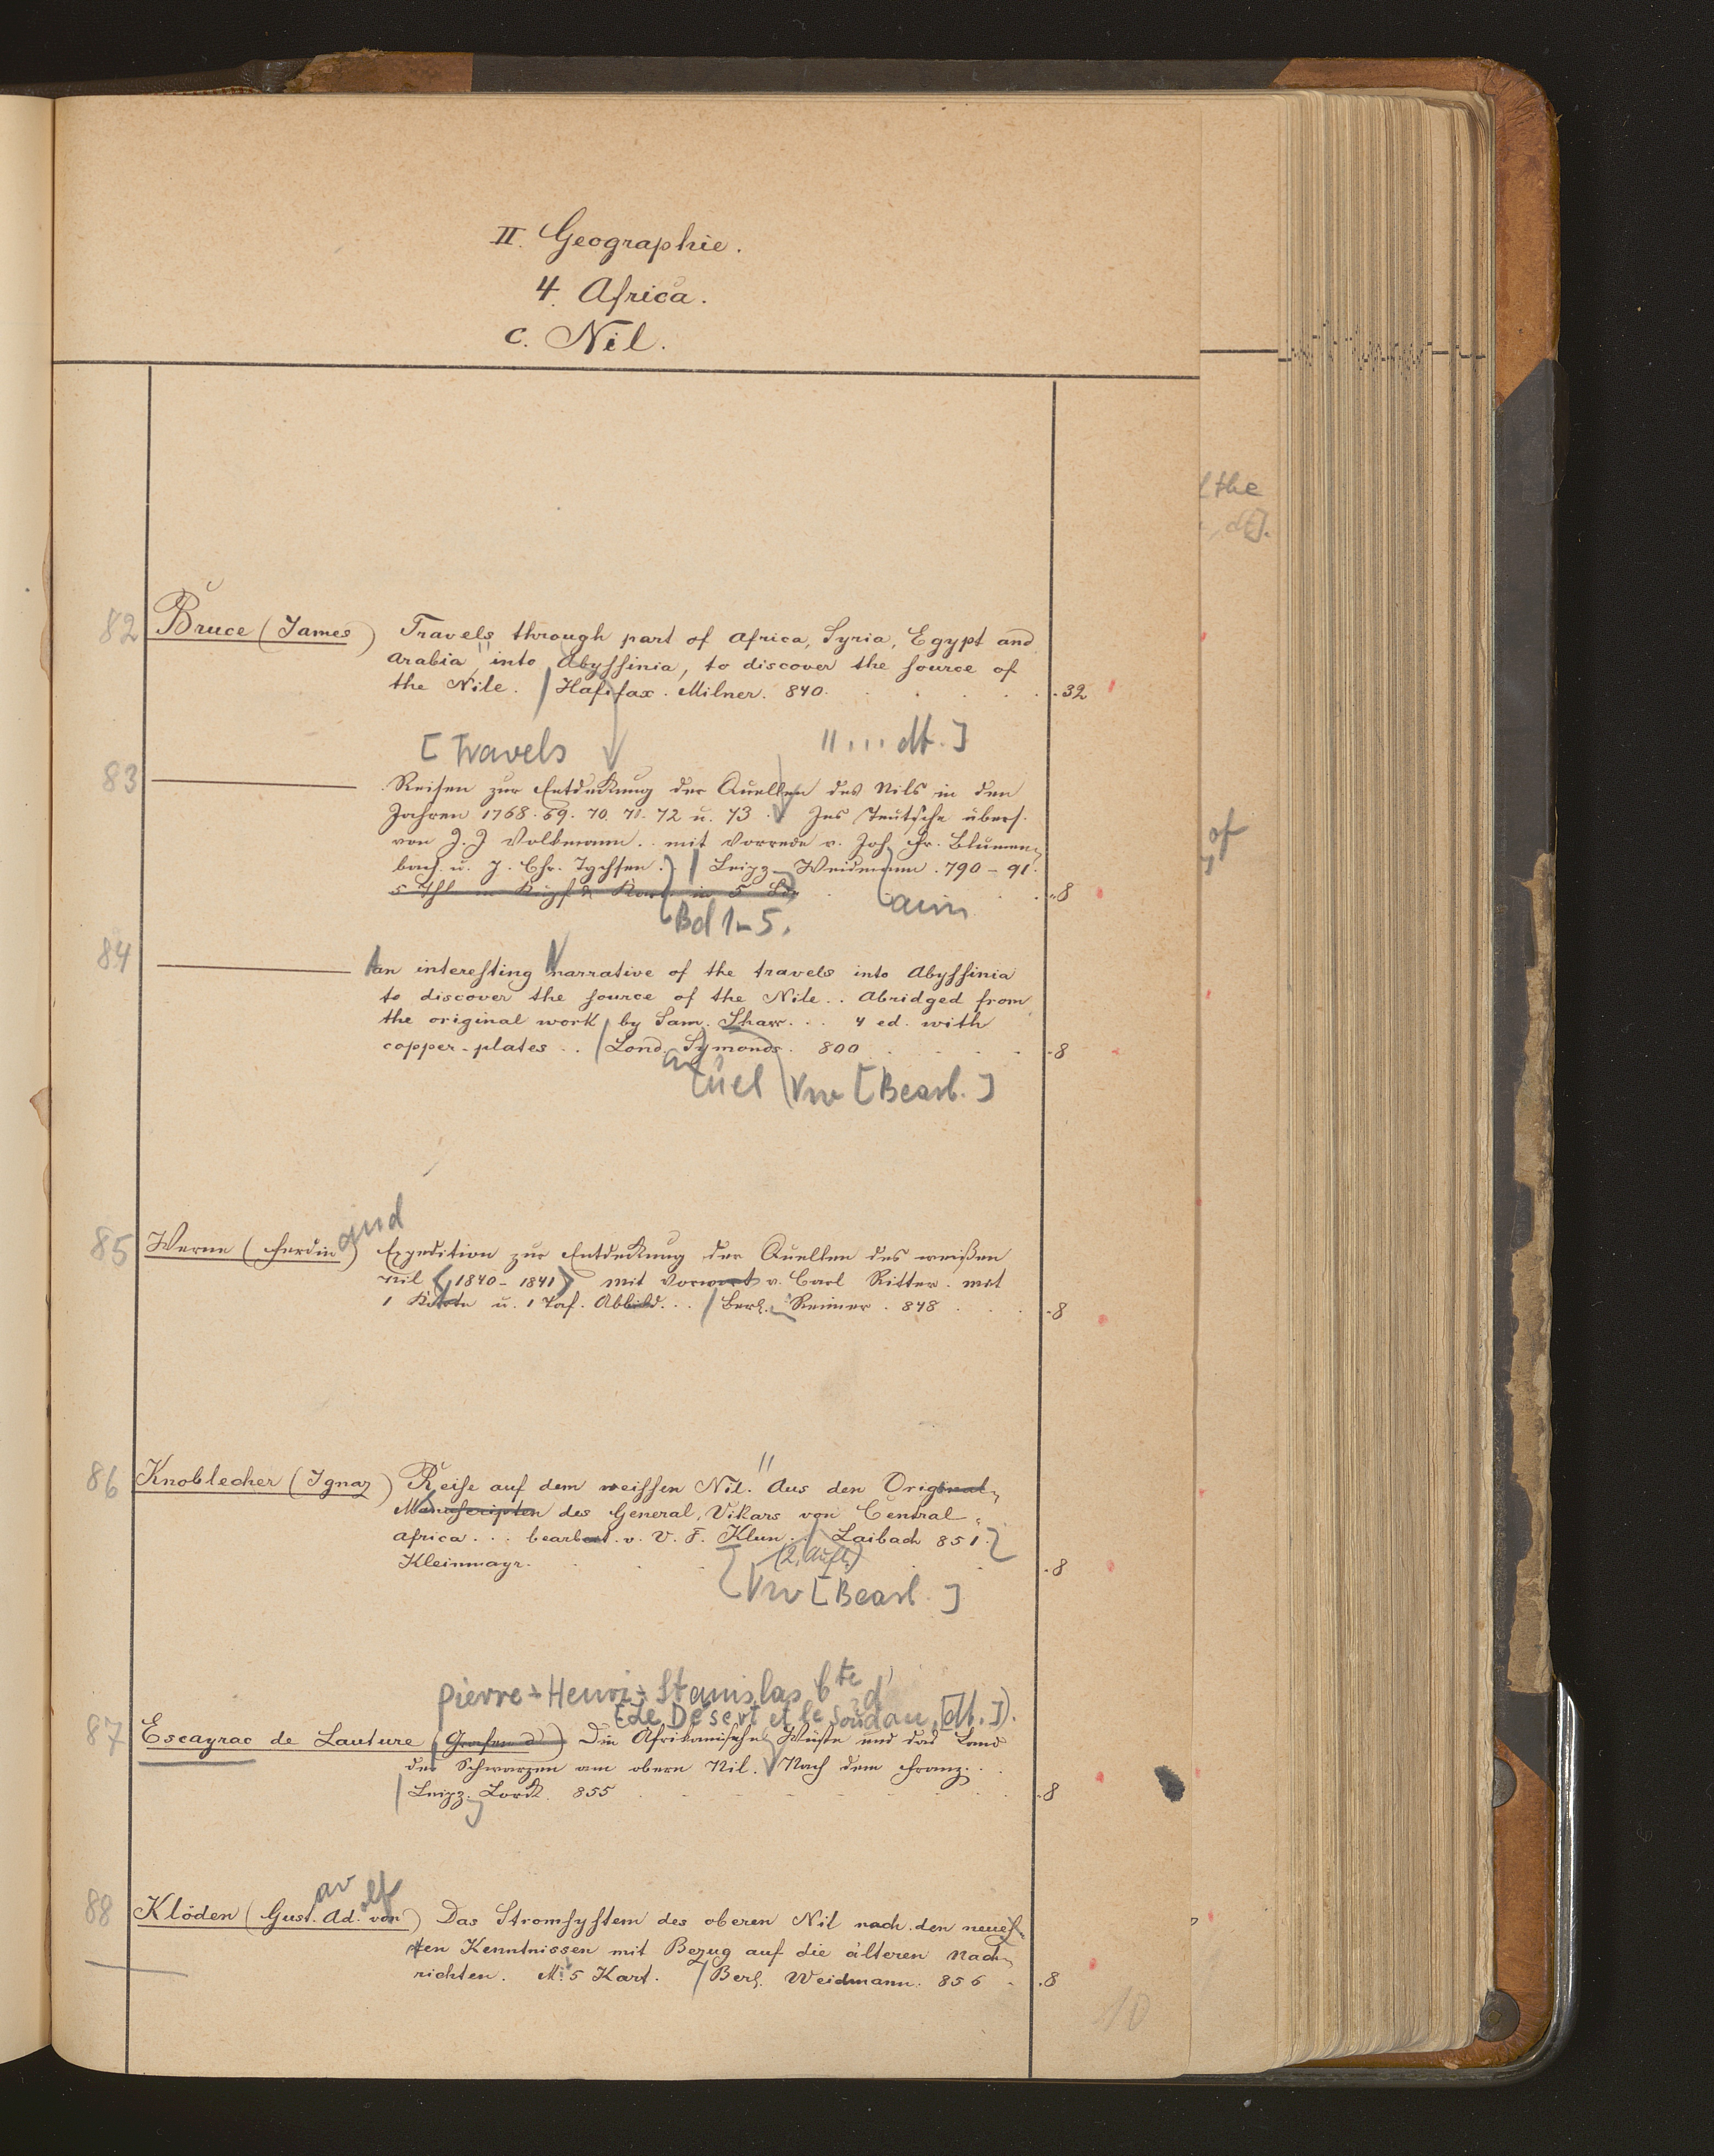 II. Geographie.
4. Africa.
c. Nil.
the
, dt].
82 Bruce (James) Travels through part of Africa, Syria, Egypt and
Arabia " into Abyssinia, to discover the source of
the Nile. / Hafifax. Milner. 840. . . . . 32
[Travels " ... dt.]
83 ——— Reisen zur Entdeckung der Quellen des Nils in den
Jahren 1768. 69. 70. 71. 72 u. 73. Ins Teutsche übers.
von J. J Volkmann . . mit Vorrede v. Joh. Fr. Blumen-
of
bach u. J. Chr. Tychsen. / Leipz. Weidmann. 790-91.
5 Thl in 5 Bde . . . 8
Bd 1-5.
84 ——— An interesting Narrative of the travels into Abyssinia
to discover the source of the Nile . . Abridged from
the original work / by Sam. Shaw . . . 4 ed. with
copper-plates . . / Lond. Symonds. 800 . . . . 8
Vw [Bearb.]
and
85 Werne (Ferdin) Expedition zur Entdeckung der Quellen des weißen
Nil (1840-1841) mit Vorwort v. Carl Ritter. mit
1 Karte u. 1 Taf. Abbild. . . / Berl. Reimer. 848 . . . 8
86 Knoblecher (Ignaz) Reise auf dem weissen Nil. " Aus den Original-
Manuscripten des General-Vikars von Central-
Africa . . . bearbeit. v. V. F. Klun. / Laibach 851.
(2. Aufl.)
Kleinmayr. . . . . 8
Vw [Bearb.]
Pierre-Henri-Stanislas Cte d'
[Le Désert et le Soudan, [dt.]).
87 Escayrac de Lauture (Grafen d') Die Afrikanische Wüste und das Land
der Schwarzen am obern Nil. Nach dem Franz. . .
/ Leipz. Lorck. 855 . . . . 8
av olf
88 Klöden (Gust. Ad. von) Das Stromsystem des oberen Nil nach den neues-
ten Kenntnissen mit Bezug auf die älteren Nach-
richten. M. 5 Kart. / Berl. Weidmann. 856 . . 8
10